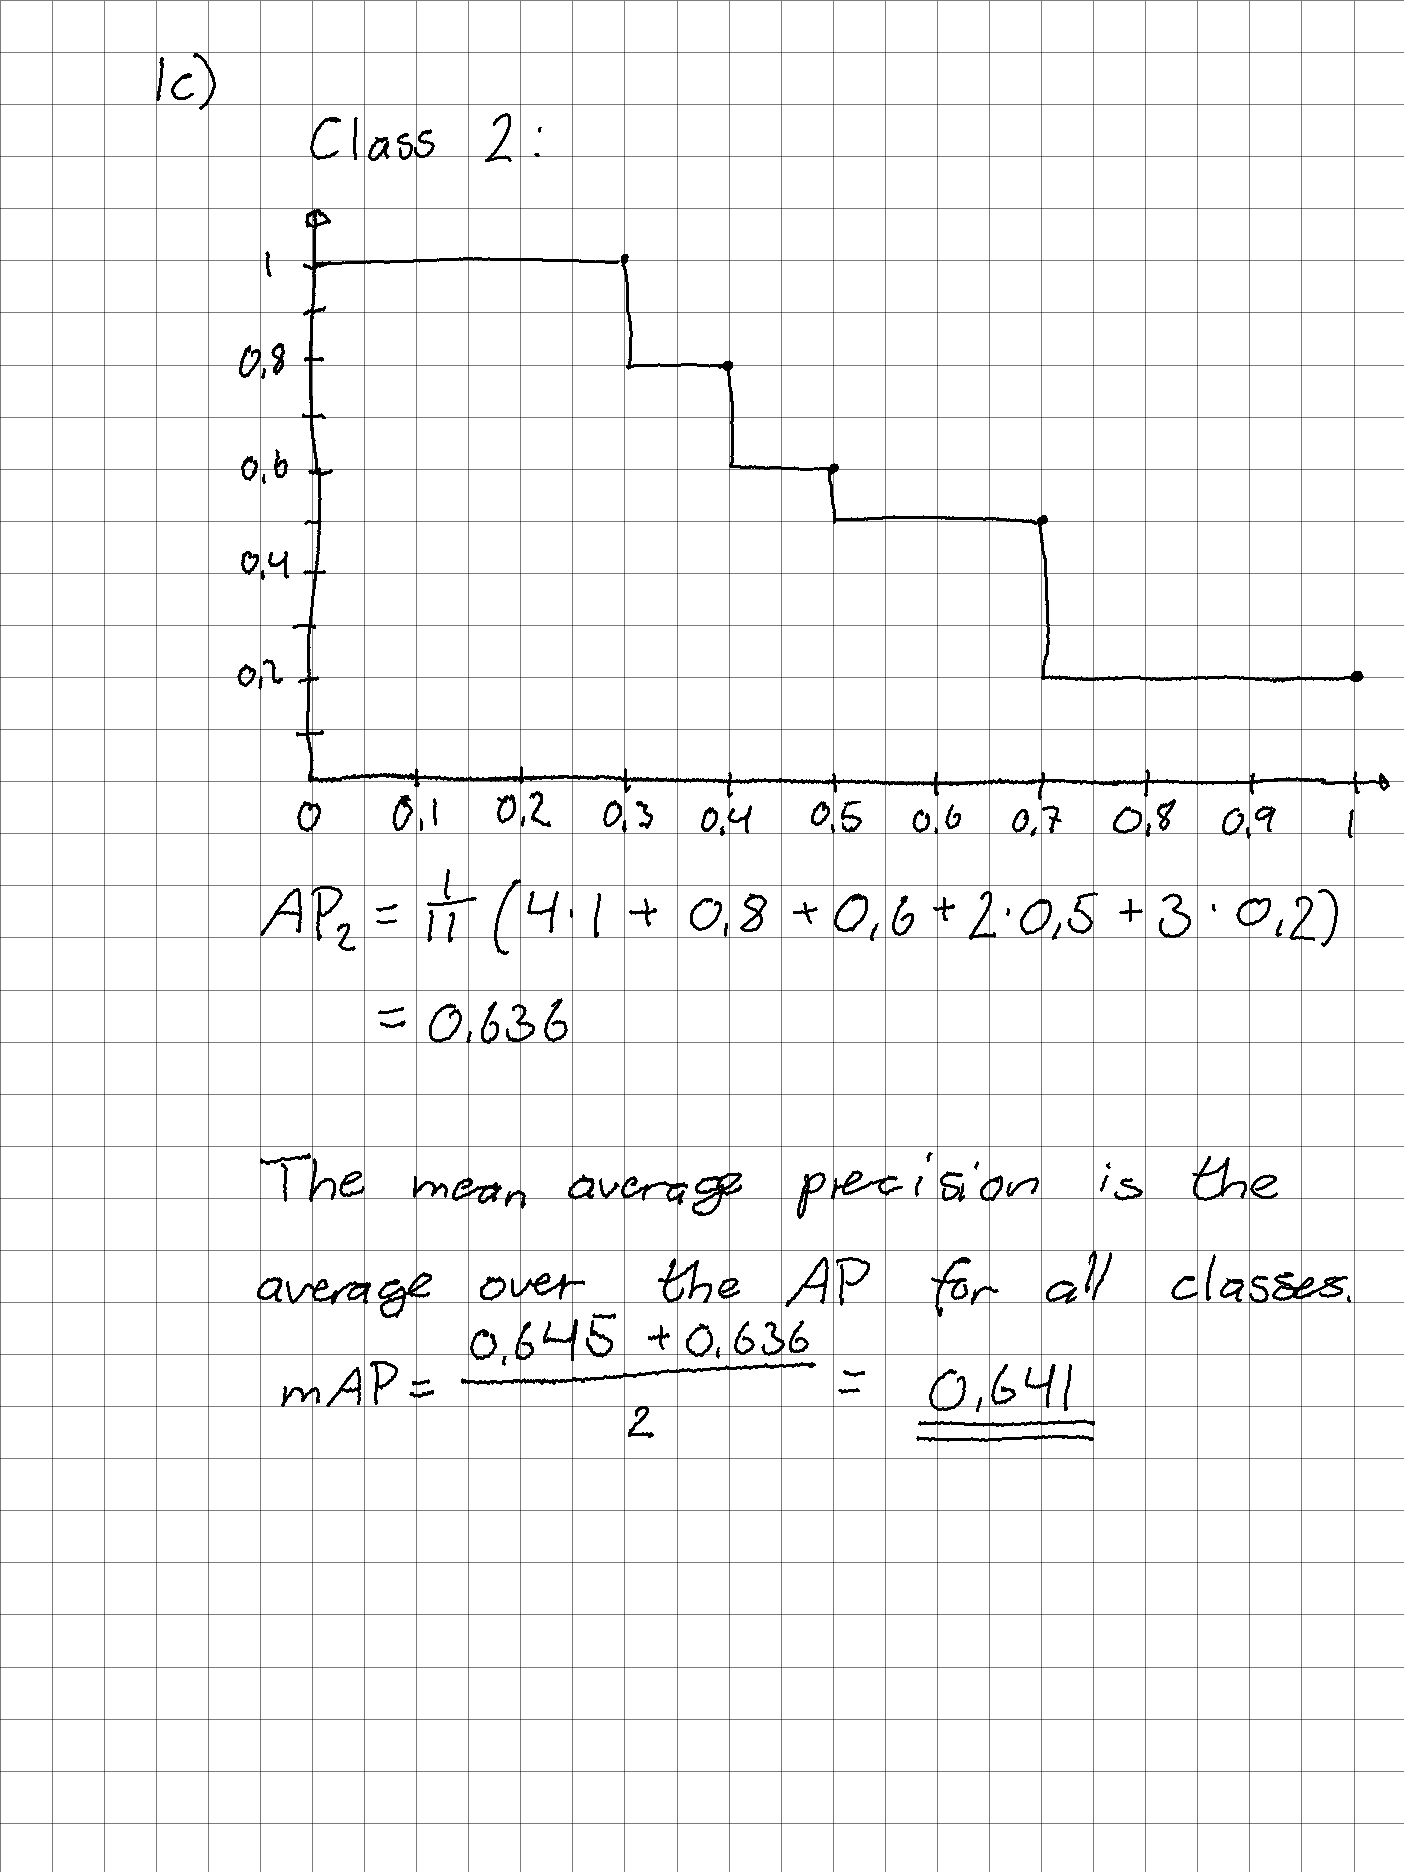 1c)
Class 2:
1
0,8
0,6
0,4
0,2
0 0,1 0,2 0,3 0,4 0,5 0,6 0,7 0,8 0,9 1
AP₂ = 1/11 (4·1 + 0,8 + 0,6 + 2·0,5 + 3·0,2)
= 0,636
The mean average precision is the
average over the AP for all classes.
mAP = (0,645 + 0,636)/2 = 0,641